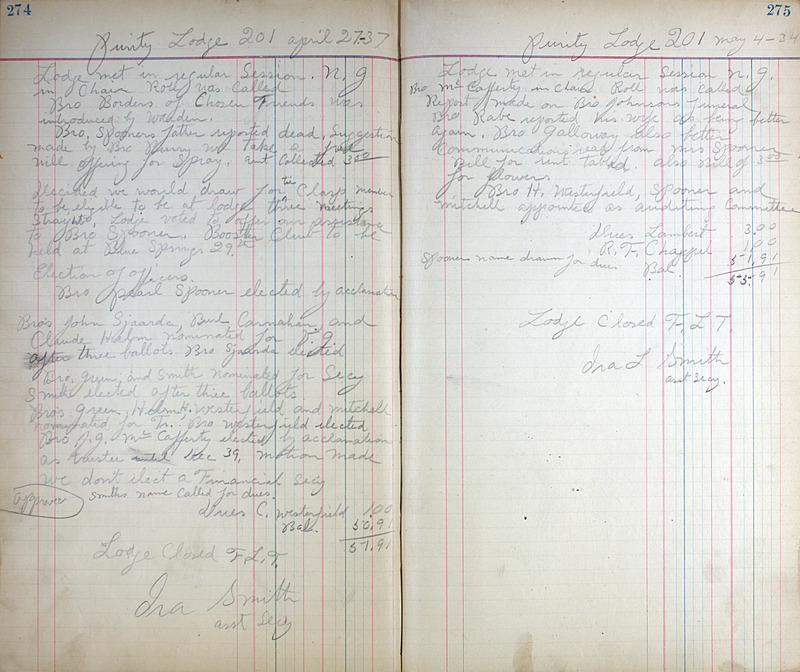 274
Purity Lodge 201 april 27-37
Lodge met in regular Session. N. g
in Chair Roll was Called
Bro Borders of Chosen Friends was
introduced by Warden.
Bro, Spooners father reported dead, Suggestion
made by Bro we take a free
will offring for Spray. amt Collected 3.00
decided we would draw for the Clasp member
to be eligible to be at lodge three meetings
Straight, Lodge voted to offer our assistance
to Bro Spooner. Booster Club to be
held at Blue Springs 29th
Election of officers.
Bro pearl Spooner elected by acclamation
Bro's John Sjaarda, Burl Carnahan, and
Claude Halm nominated for V. g.
after three ballots Bro Sjaarda elected
Bro, green, and Smith nominated for Secy
Smith elected after three ballots.
Bro's green, Halm H. Westerfield and mitchell
nominated for Tr. Bro Westerfield elected
Bro J. g. Mc Cafferty elected by acclamation
as trustee until Dec 39, motion made
we dont elect a Financial Secy
approved Smiths name Called for dues.
dues C. Westerfield 1.00
Bal. 50.91
51.91
Lodge Closed F. L. T.
Ira Smith
asst Secy
275
Purity Lodge 201 may 4-34
Lodge met in regular Session N. g.
Bro Mc Cafferty in chair Roll was called
Report made on Bro Johnsons funeral
Bro Rabe reported his wife as being better
again. Bro Galloway also better
Communication read from mrs Spooner
Bill for rent tabled. also Bill of 3.00
for flowers.
Bro H. Westerfield, Spooner and
mitchell appointed as auditing Committee
dues Lambert 3.00
R. F. Chappel 1.00
Spooners name drawn for dues Bal 51.91
55.91
Lodge Closed F. L T.
Ira L Smith
asst Secy.